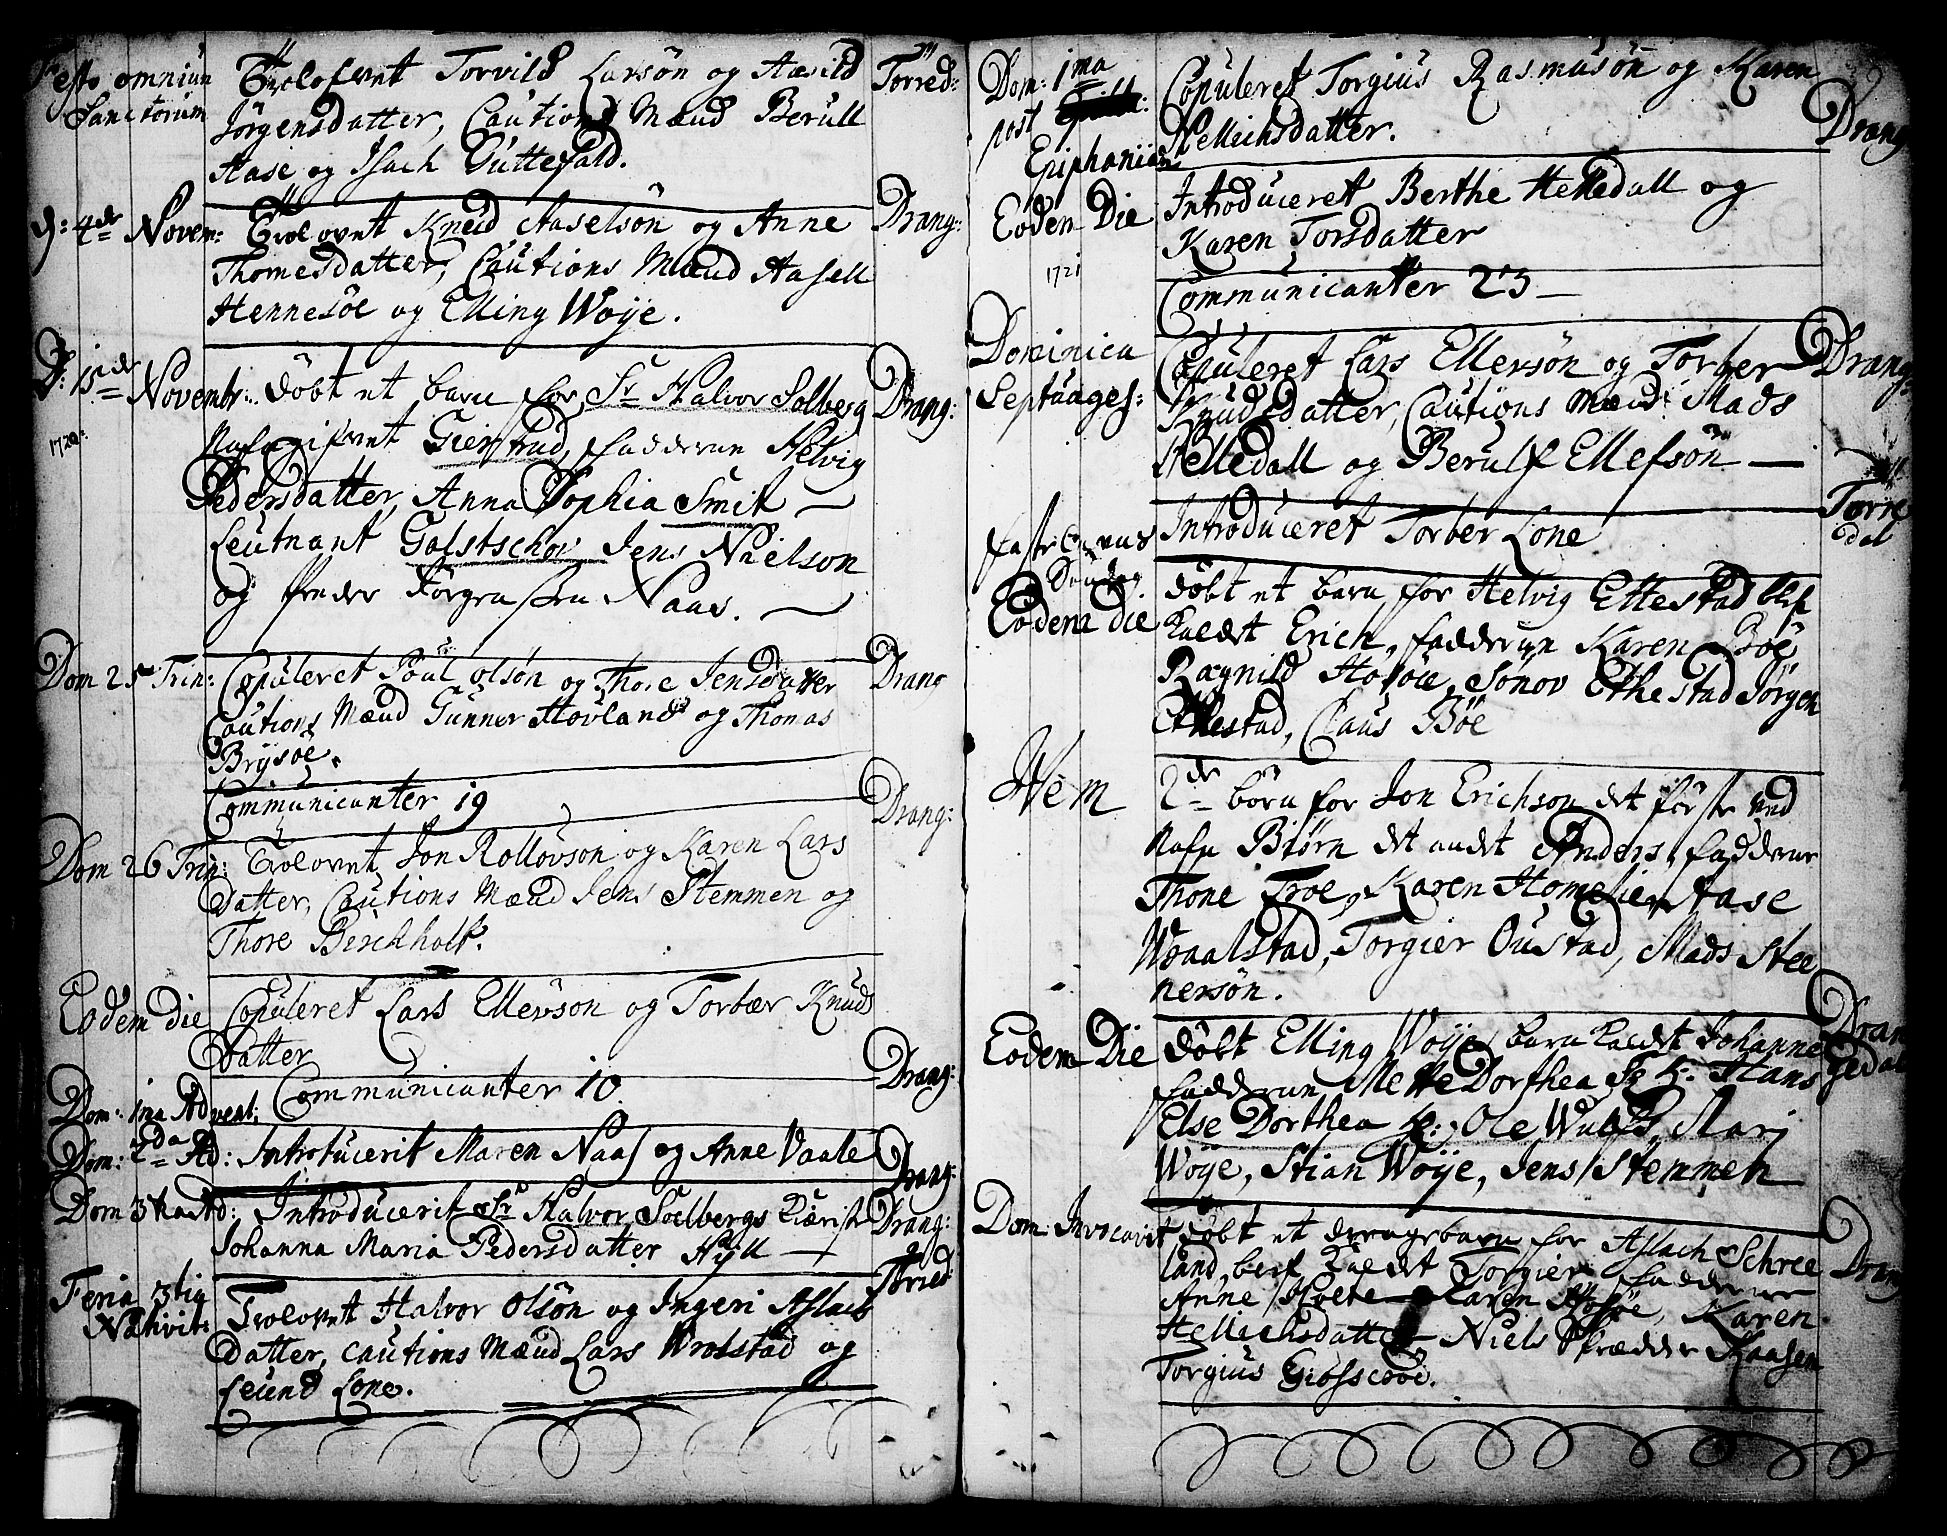 Festo omnium Sanctorum
Trolofvet Torvild Larsön og Aasild Torred:
Jörgensdatter, Cautions Mænd Berull
Aase og Isach Guttefald.
d: 4de Novem: Trolovet Knud Aaselsön og Anne Drang:
Thomesdatter, Cautions Mænd Aasell
Hennesöe og Elling Woÿe.
D: 15de Novembr: döbt et barn for Sr Halvor Solberg Drang:
1720
Nafngifvet Giertrud, fadderne Helvig
Pedersdatter, Anna Sophia Smit
Leutnant Jens Naielson
og Peder Jörgensen Naas.
Dom 25 Trin: Copuleret Poul olsön og Thore Jensdatter Drang
Cautions Mænd Gunner Hovland og Thomas
Brÿsöe.
Communicanter 19 Drang:
Dom 26 Trin: Trolovet Jon Rollovson og Karen Lars
datter, Cautions Mænd Jens Stemmen og
Thore Berckholt.
Eodem die Copuleret Lars Ellevson og Torbær Knuds
datter
Communicanter 10. Drang:
Dom: 1ma Advent:
Dom: 2da Ad: Introducerit Maren Naas og Anne Vaale Drang:
Dom 3tia Ad: Introducerit Sr Halvor Soelbergs Kiæriste Drang:
Johanna Maria Pedersdatter Hÿll
Feria 3tia Nativit: Trolovet Halvor Olsön og Ingeri Aslacs Torred:
Datter, cautions Mænd Lars Wrolstad og
Leund Lone.
Dom: 1ma post Epiphanias
Copuleret Torgius Rasmusön og Karen Drang
Hellichsdatter.
Eodem Die Introduceret Berthe Helledall og
Karen Torsdatter
1721
Communicanter 23
Dominica Septuages:
Copuleret Lars Ellevsön og Torber Drang:
Knudsdatter, Cautions Mænd Mads
Helledall og Berulf Ellefsön
Fastelavns Söndag. Introduceret Torber Lone Torredal
Eodem die döbt et barn for Helvig Ettestad blef
kaldet Erich, fadderne Karen Böe
Ragnild Hosöe, Sönov Ettestad Jörgen
Ettestad, Claus Böe
Item 2de börn for Jon Erichson det förste ved
Nafn Biörn det andet Anders, fadderne
Thone Troe, Karen Homelien Aase
Wraalstad, Torgier Oustad, Mads Stee
nersön.
Eodem Die döbt Elling Woÿe barn kaldet Johanne Drangedal
fadderne Mette Dorthea Hans
Else Dorthea Ole Wulf, Mari
Woÿe, Stian Woÿe, Jens Stemmen
Dom: Invocavit döbt et drengebarn for Aslach Schree
land, blef kaldet Torgier fadderne Drang
Anne Karen Hosöe, Karen
Hellichsdatter Niels Skrædder Kaasen
Torgius